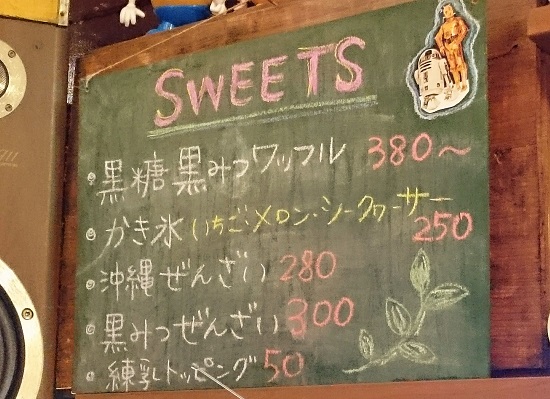 SWEETS
黒糖黒みつワッフル 380〜
かき氷 いちご・メロン・シークヮーサー 250
沖縄ぜんざい 280
黒みつぜんざい 300
練乳トッピング 50